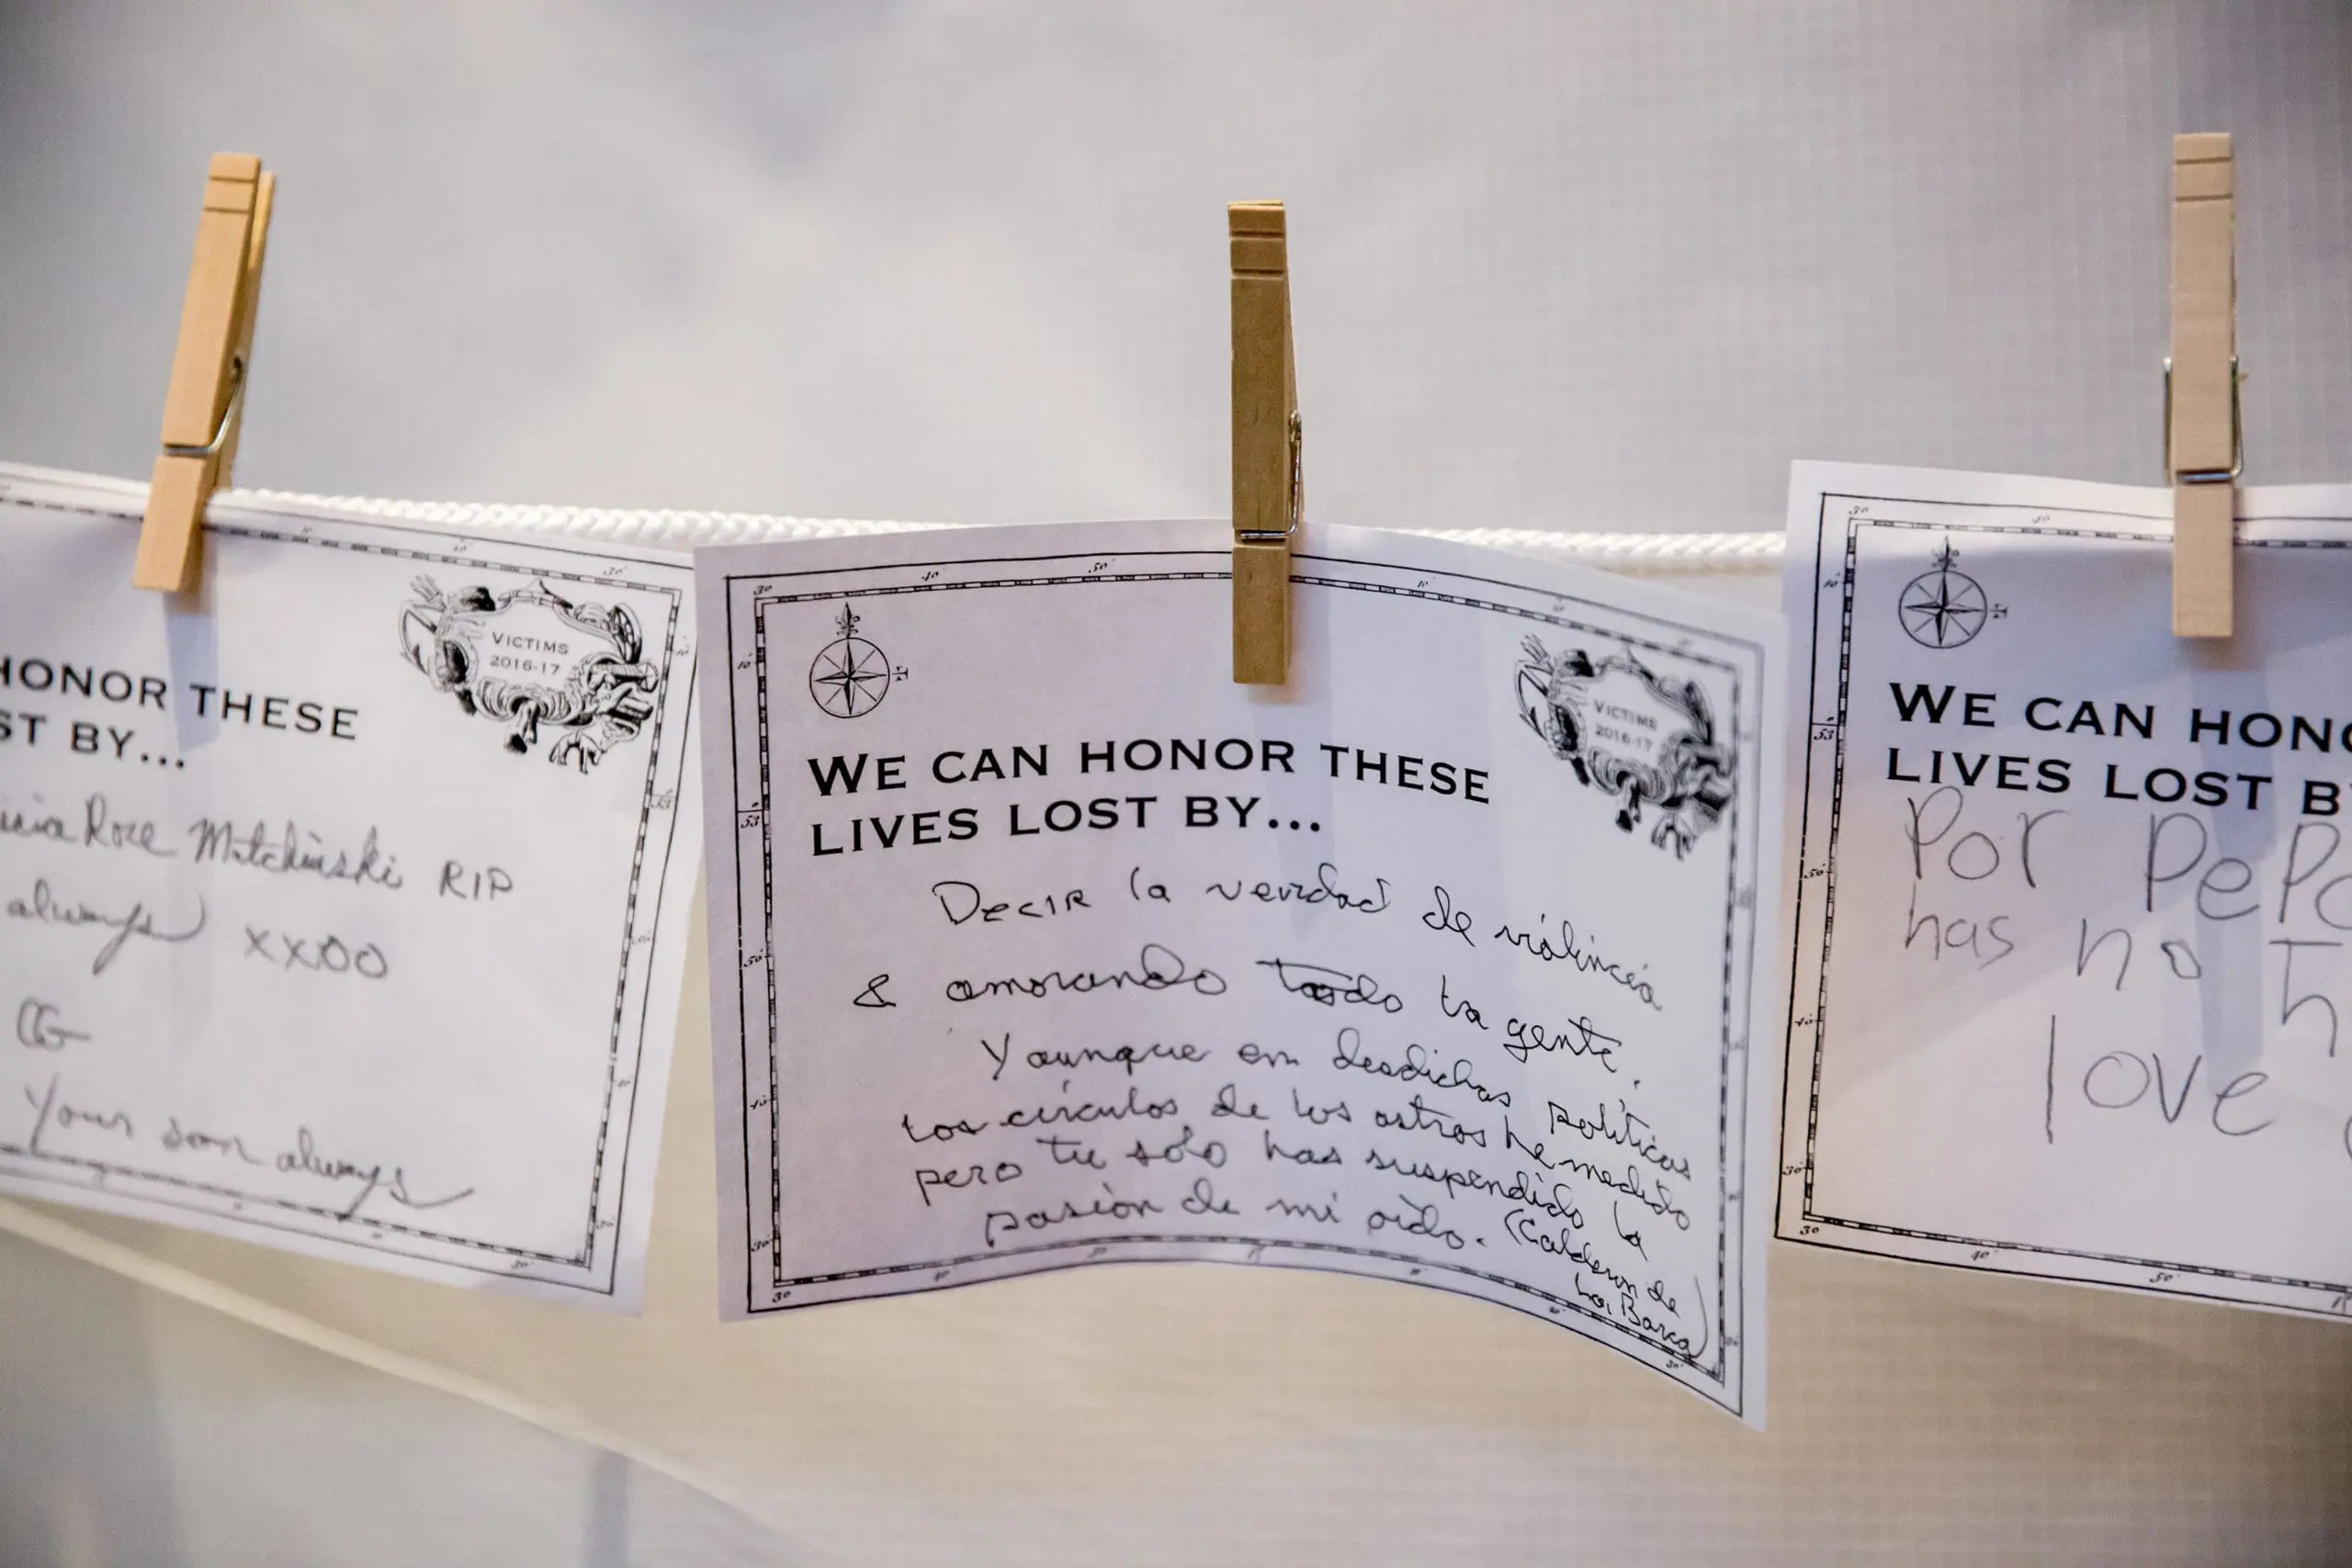 VICTIMS
2016-17
HONOR THESE
ST BY...
Rose Mitchinski RIP
always xxoo
CG
Your son always
VICTIMS
2016-17
WE CAN HONOR THESE
LIVES LOST BY...
Decir la verdad de violincia
& amorando todo la gente.
Y aunque en desdichas politicas
los circulos de los astros he medido
pero tu sólo has suspendido la
pasión de mi oido. (Calderon de
La Barca)
WE CAN HONO
LIVES LOST B
Por Pepe
has no
love